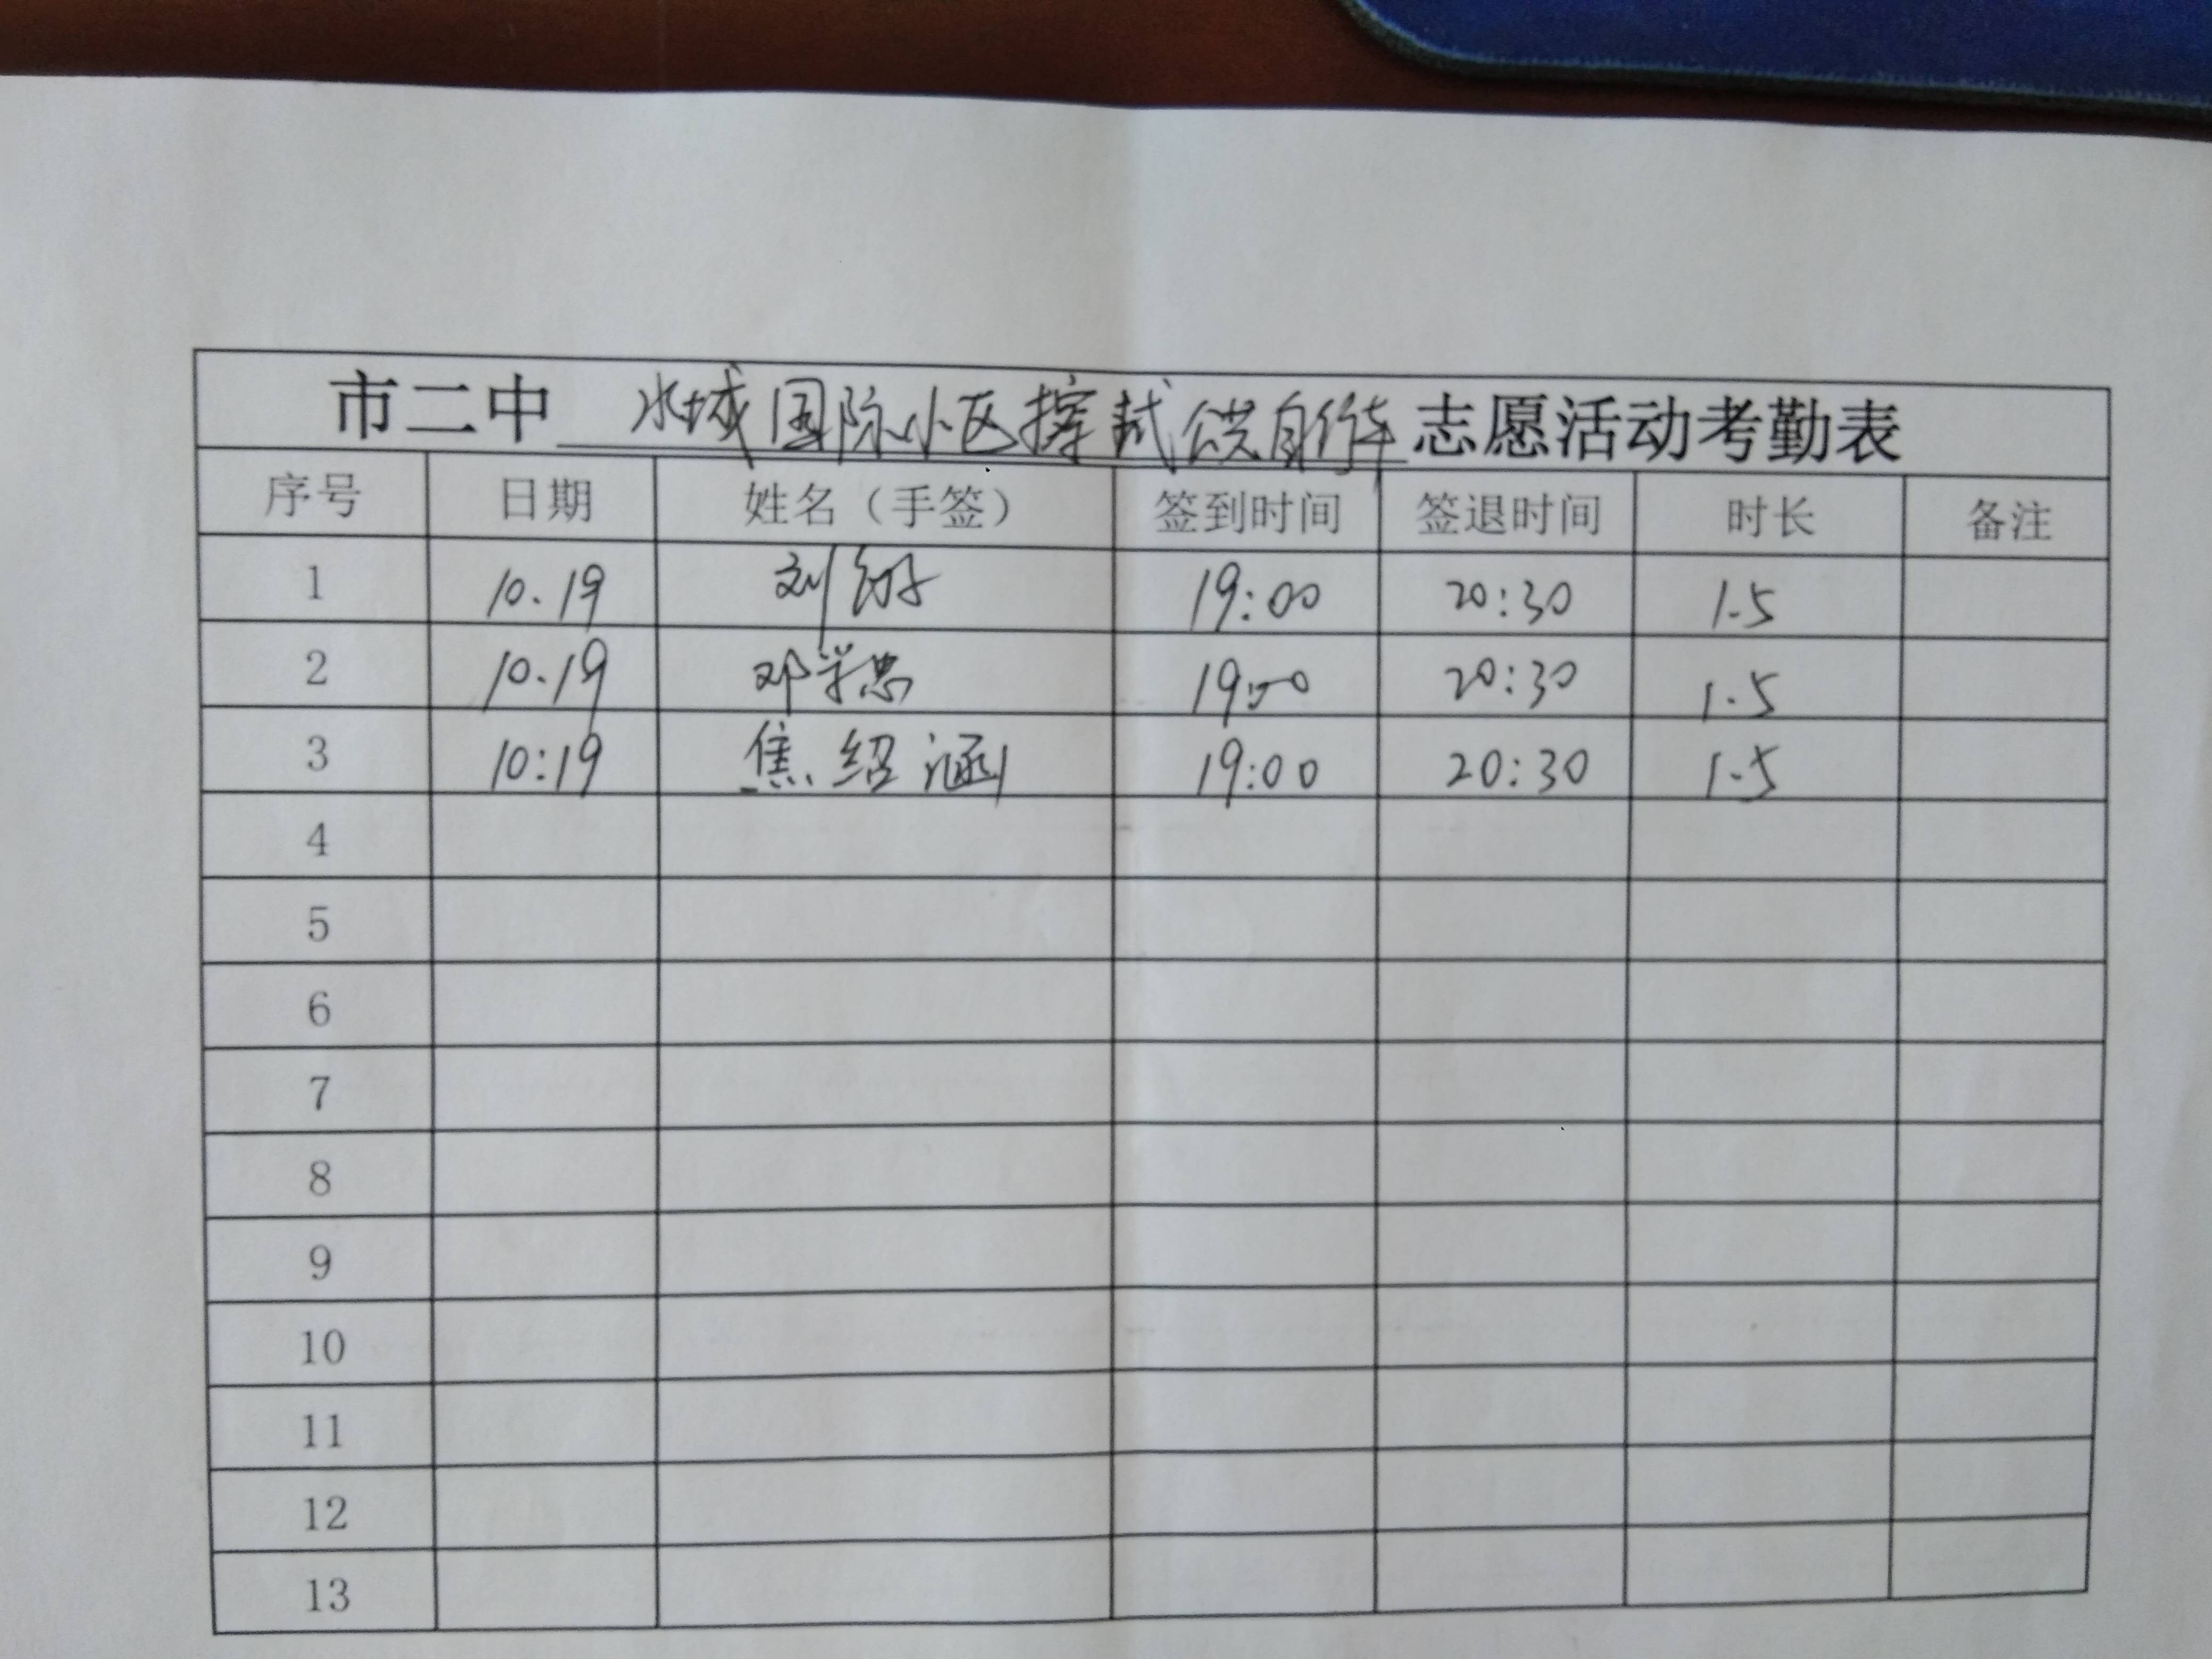 市二中 水城国际小区擦试公共自行车 志愿活动考勤表
序号 日期 姓名（手签） 签到时间 签退时间 时长 备注
1 10.19 刘 19:00 20:30 1.5
2 10.19 邓学忠 19:00 20:30 1.5
3 10:19 焦绍涵 19:00 20:30 1.5
4
5
6
7
8
9
10
11
12
13